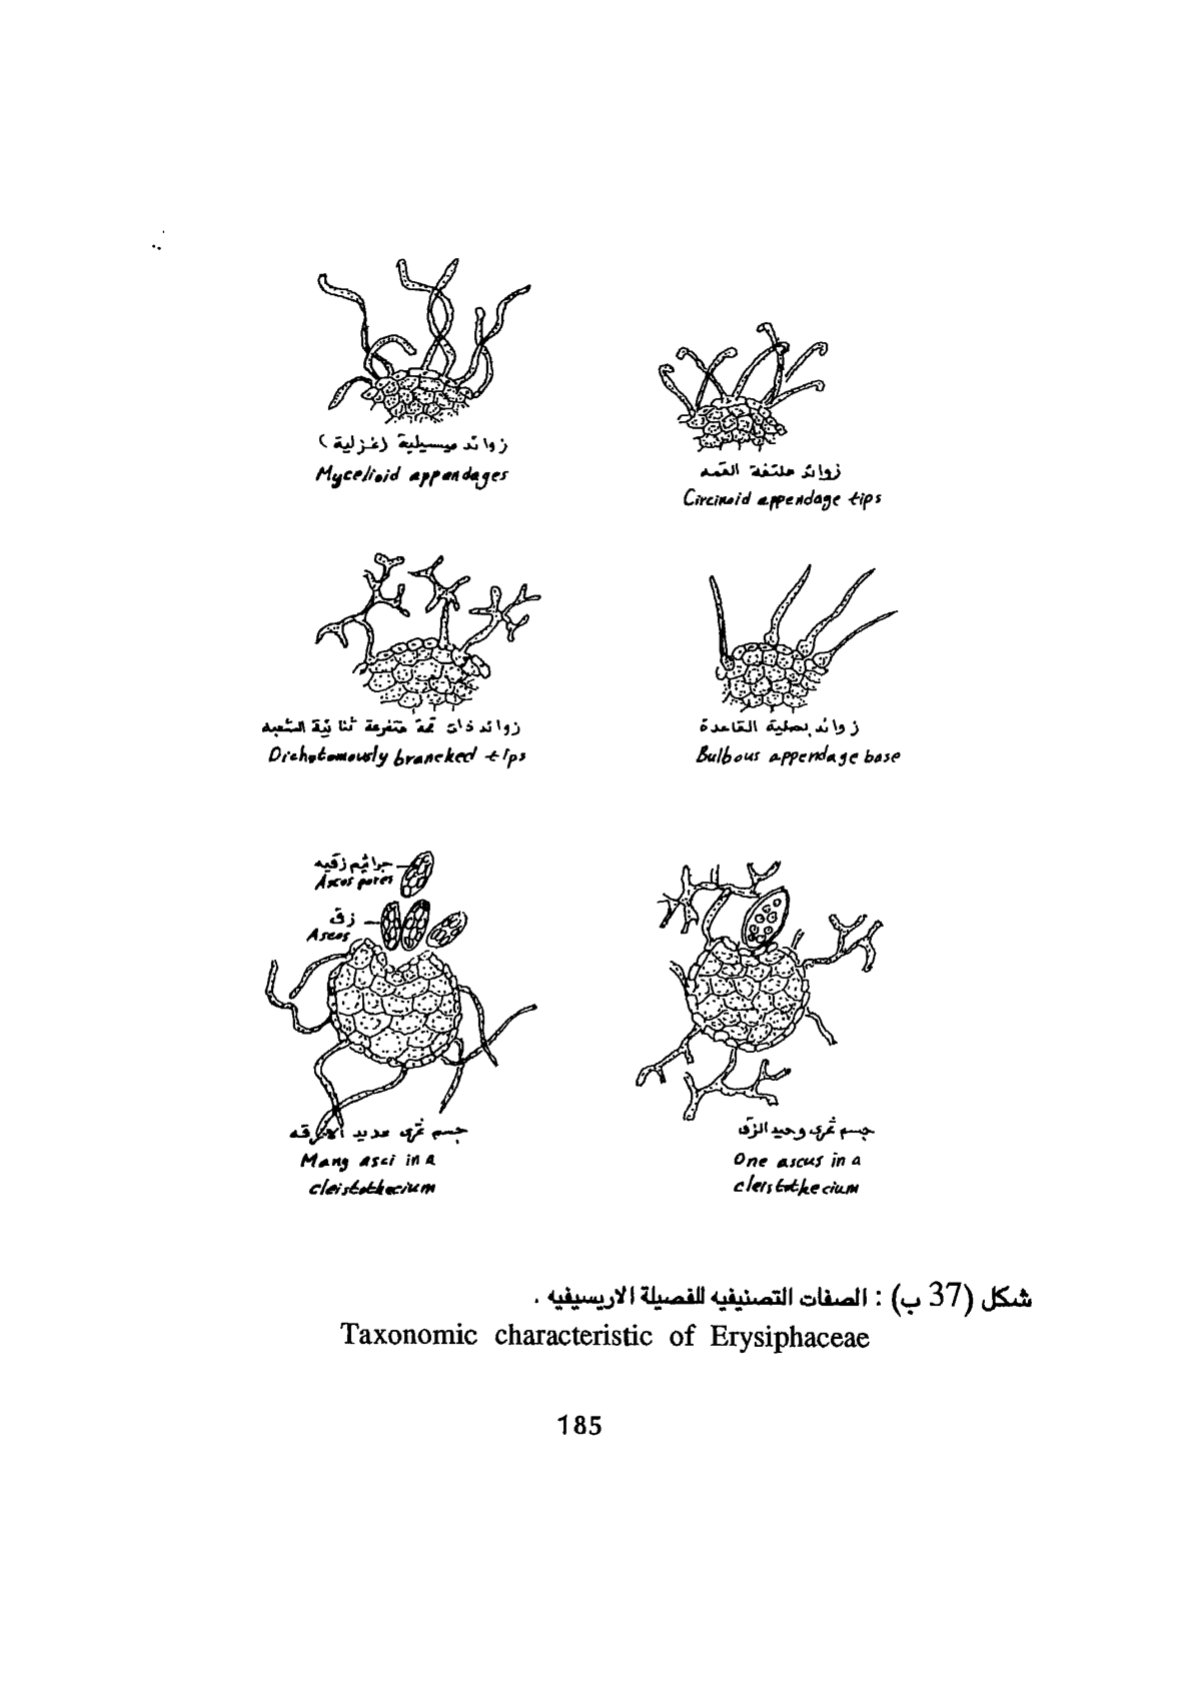 زوائد ميسيلية (غزلية)
Mycelioid appendages
زوائد ملتفة القمه
Circinoid appendage tips
زوائد ذات قمة متفرعة ثنائية الشعبه
Dichotomously branched tips
زوائد بصلية القاعدة
Bulbous appendage base
جراثيم زقيه
Ascospores
زق
Ascos
جسم ثمري عديد الازقه
Many asci in a
cleistothecium
جسم ثمري وحيد الزق
One ascus in a
cleistothecium
شكل (37 ب) : الصفات التصنيفيه للفصيلة الاريسيفيه .
Taxonomic characteristic of Erysiphaceae
185